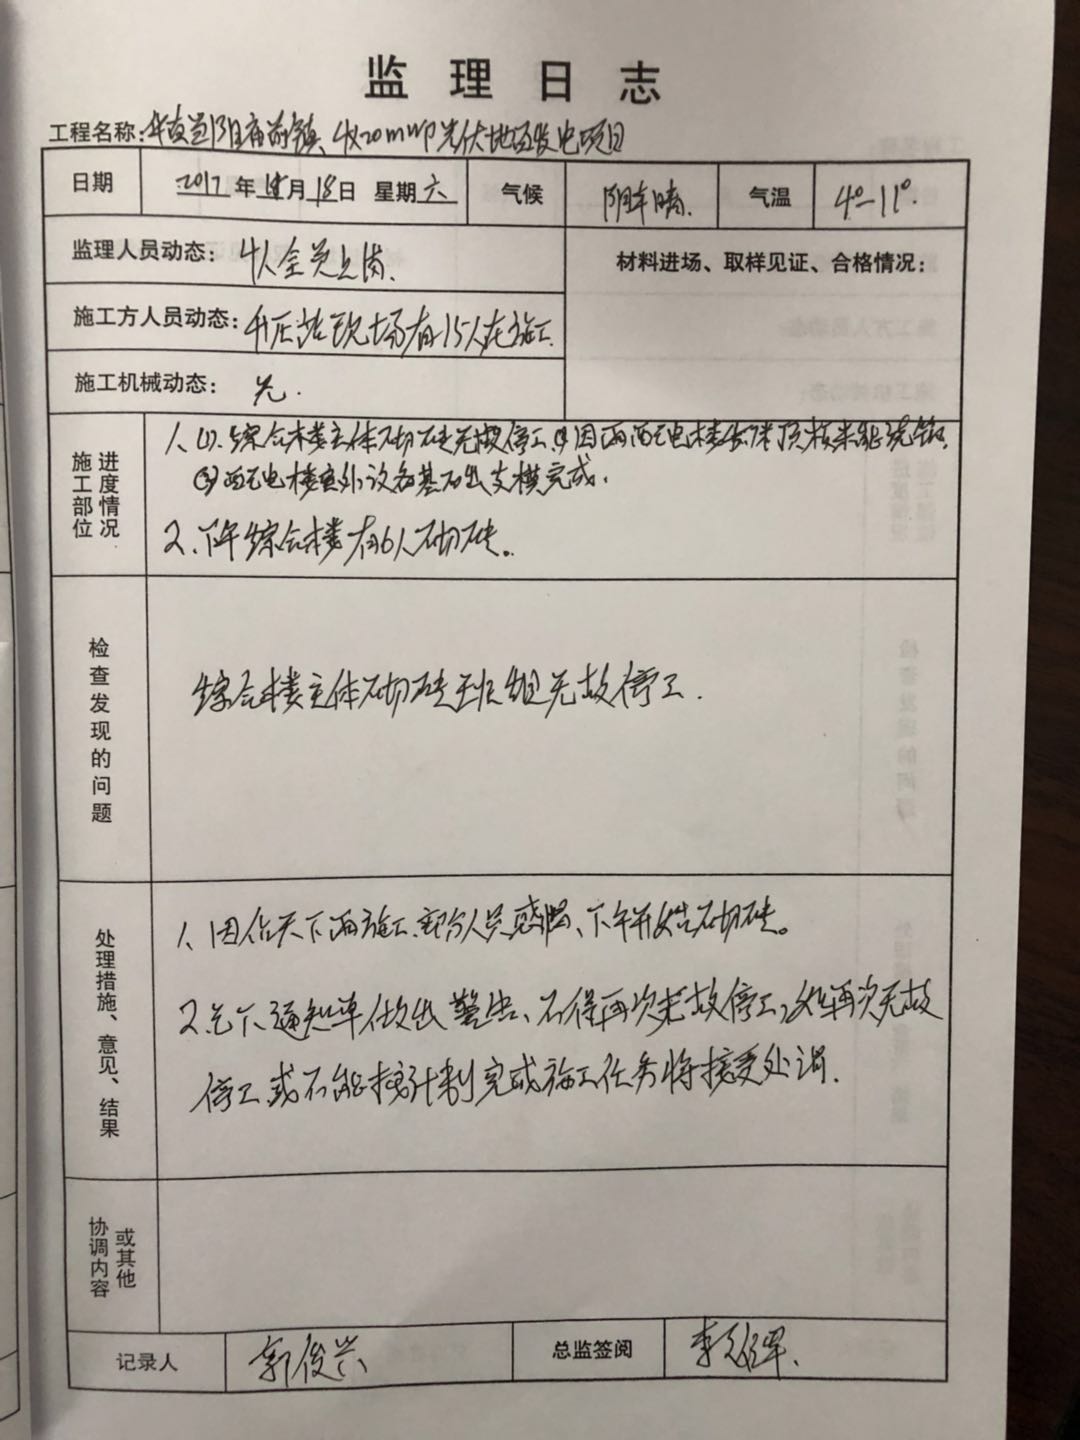 监理日志
工程名称: 4x20mwp光伏地面发电项目
日期 2017年11月18日 星期六 气候 阴转晴. 气温 4°-11°.
监理人员动态: 4人全员上岗. 材料进场、取样见证、合格情况:
施工方人员动态: 升压站现场有15人在施工.
施工机械动态: 无.
施工部位 进度情况
1、(1). 综合楼主体砌砖无故停工. 因雨配电楼 顶板未能浇筑.
(3)配电楼室外设备基础支模完成.
2、下午综合楼有6人砌砖。
检查发现的问题
综合楼主体砌砖班组无故停工.
处理措施、意见、结果
1、因昨天下雨施工部分人员感冒、下午开始砌砖。
2、已下通知单做出警告、不得再次无故停工,如再次无故
停工或不能按计划完成施工任务将接受处罚.
协调内容 或其他
记录人 郭俊兴 总监签阅